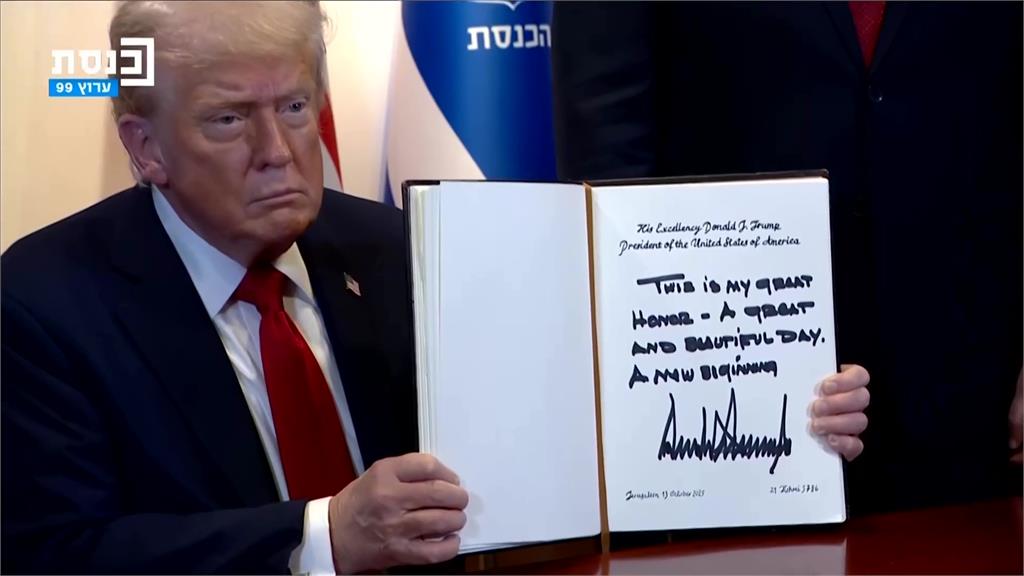 כנסת
ערוץ 99
הכנסת
His Excellency Donald J. Trump
President of the United States of America
THIS IS MY GREAT
HONOR - A GREAT
AND BEAUTIFUL DAY.
A NEW BIGINNING
Jerusalem, 13 October 2025
21 Tishrei 5786